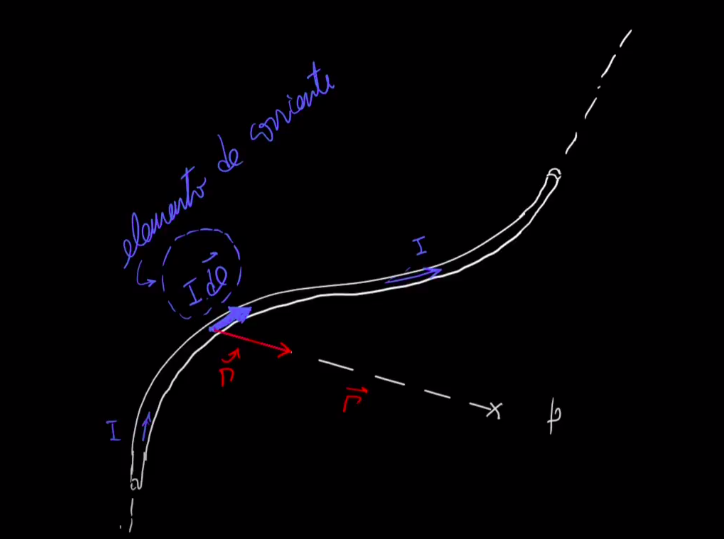 elemento de corriente
I d\vec{l}
I
I
\vec{r}
\vec{r}
p